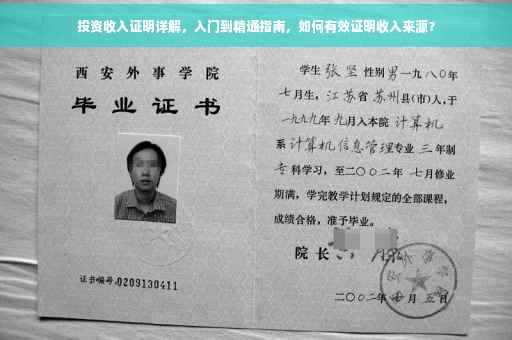 投资收入证明详解，入门到精通指南，如何有效证明收入来源？
西安外事学院
毕业证书
证书编号:0209130411
学生 张坚 性别 男 一九八〇年
七月生，江苏省苏州县(市)人，于
一九九九年九月入本院 计算机
系 计算机信息管理专业 三年制
专科学习，至二〇〇二年 七月修业
期满，学完教学计划规定的全部课程，
成绩合格，准予毕业。
院长
二〇〇二年 月 五日